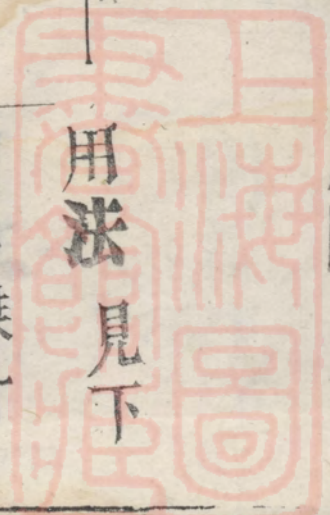 用法見下
上海圖書館藏